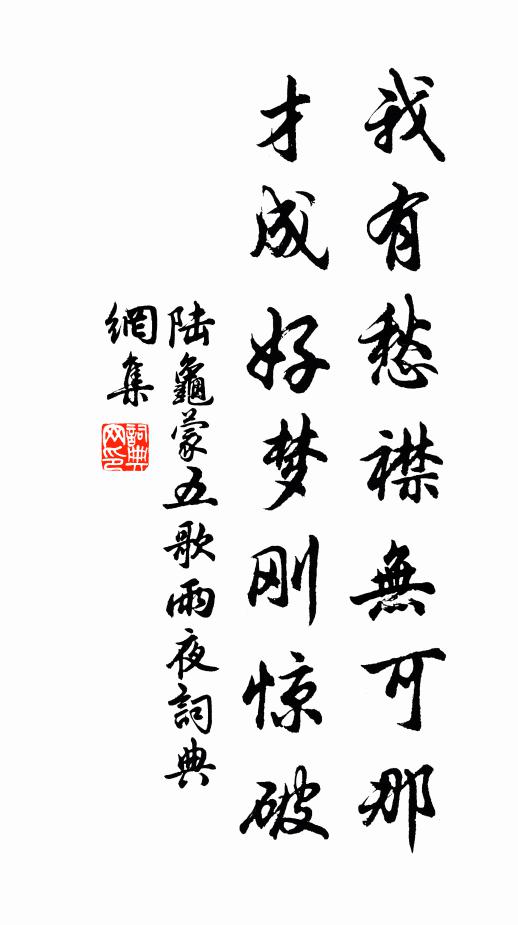 我有愁襟無可那
才成好梦刚惊破
陆龜蒙五歌雨夜詞典
網集
詞典网印